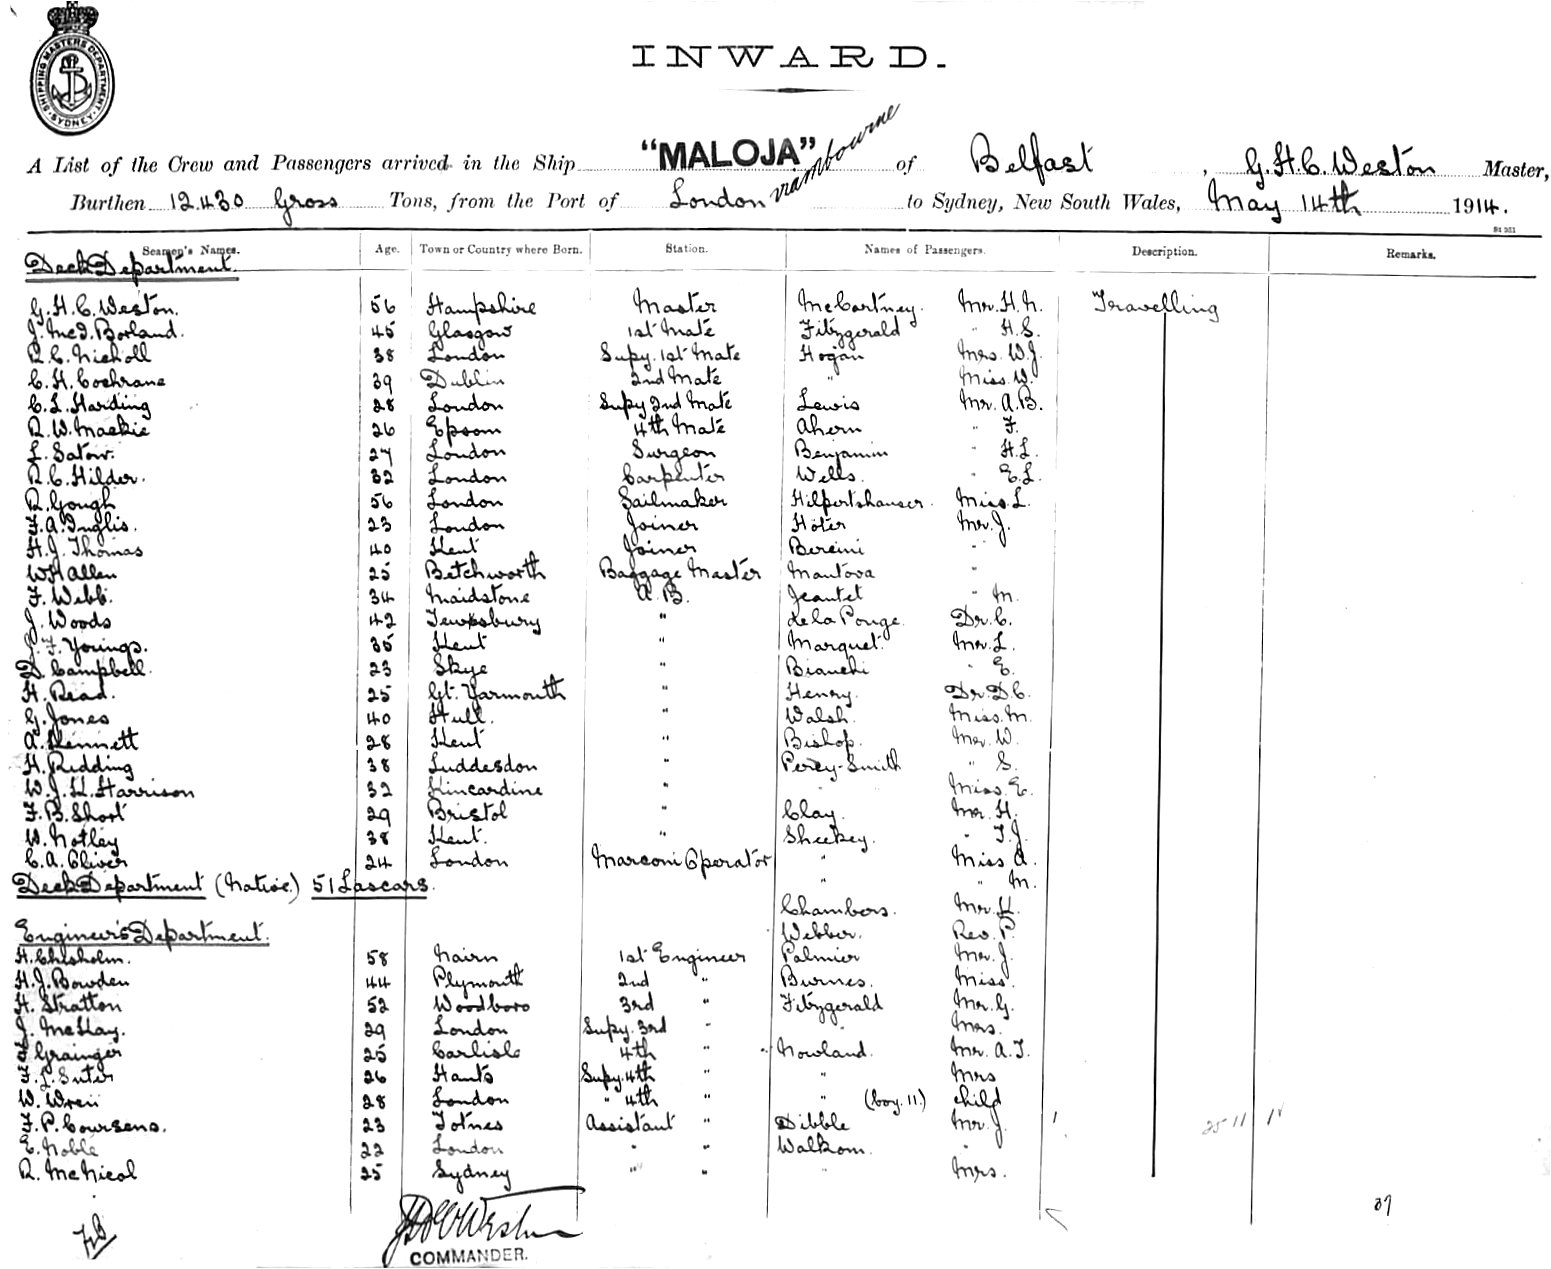 SHIPPING MASTERS DEPARTMENT SYDNEY
INWARD.
A List of the Crew and Passengers arrived in the Ship "MALOJA" of Belfast, G.H.C. Weston Master,
Burthen 12,430 Gross Tons, from the Port of London to Sydney, New South Wales, May 14th 1914.
Seamen's Names. Age. Town or Country where Born. Station. Names of Passengers. Description. Remarks.
Deck Department.
G.H.C. Weston. 56 Hampshire Master McCartney. Mr. H.N. Travelling
J. McI. Borland. 45 Glasgow 1st Mate Fitzgerald " H.S.
R.C. Nicholl 38 London Supy. 1st Mate Hogan Mrs. W.J.
C.H. Cochrane 39 Dublin 2nd Mate " Miss. W.
C.L. Harding 28 London Supy 2nd Mate Lewis Mr. A.B.
R.W. Mackie 26 Epsom 4th Mate Ahern " F.
L. Satow. 27 London Surgeon Benjamin " H.L.
R.C. Hilder. 32 London Carpenter Wells. " E.L.
R. Gough 56 London Sailmaker Hilpertshauser. Miss. L.
F.A. Inglis. 23 London Joiner Höter Mr. J.
H.J. Thomas 40 Kent Joiner "
W.H Allen 25 Betchworth Baggage Master Mantova "
F. Webb. 34 Maidstone A.B. Jeantet " M.
J. Woods 42 Tewksbury " de la Pouge. Dr. C.
F. Youngs. 35 Kent " Marquet. Mr. L.
D. Campbell. 23 Skye " Bianchi " E.
H. Read. 25 Gt. Yarmouth " Henry. Dr. D.C.
G. Jones 40 Hull. " Walsh. Miss. M.
A. Kennett 28 Kent " Bishop. Mr. W.
H. Ridding 38 Luddesdon " Percy-Smith " S.
W.J.H. Harrison 32 Kincardine " " Miss. E.
F.B. Short 29 Bristol " Clay. Mr. H.
W. Notley 38 Kent. " Sheekey. " T.J.
C.A. Oliver 24 London Marconi Operator " Miss A.
Deck Department (Native.) 51 Lascars. " " M.
Chambers. Mr. H.
Engineer's Department. Webber. Rev. P.
H. Chisholm. 58 Nairn 1st Engineer Palmier Mr. J.
H.J. Bowden 44 Plymouth 2nd " Burnes. Miss.
H. Stratton 52 Woodboro 3rd " Fitzgerald Mr. G.
J. McKay. 29 London Supy. 3rd " " Mrs.
Grainger 25 Carlisle 4th " Nowland. Mr. A.T.
F.L. Suter 26 Hants Supy. 4th " " Mrs
W. Wren 28 London " 4th " " (boy. 11.) child
F.P. Coursens. 23 Totnes Assistant " Dibble Mr. J.
E. Noble 22 London " " Walkom. "
R. McNicol 25 Sydney " " " Mrs.
37
COMMANDER.